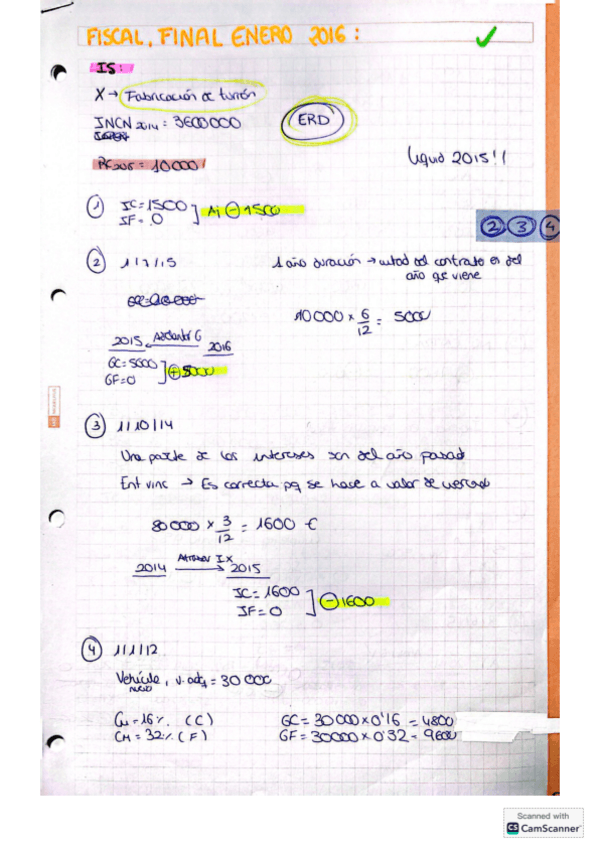 FISCAL, FINAL ENERO 2016:
IS:
X → Fabricación de turrón
INCN 2014 = 3600000
ERD
= 10000
Liquid 2015!!
① IC = 1500
IF = 0
Aj ⊖ 1500
② ③ ④
② 1/7/15
1 año duración → mitad del contrato es del año q se viene
10000 x 6/12 = 5000
2015 2016
GC = 5000
GF = 0
⊕ 5000
③ 1/10/14
Una parte de los intereses son del año pasado
Ent vinc → Es correcta pq se hace a valor de mercado
80000 x 3/12 = 1600 €
2014 → 2015
IC = 1600
IF = 0
⊖ 1600
④ 1/1/12
Vehículo, v. adq = 30000
nuevo
= 16%. (C)
CM = 32%. (F)
GC = 30000 x 0'16 = 4800
GF = 30000 x 0'32 = 9600
Scanned with
CS CamScanner